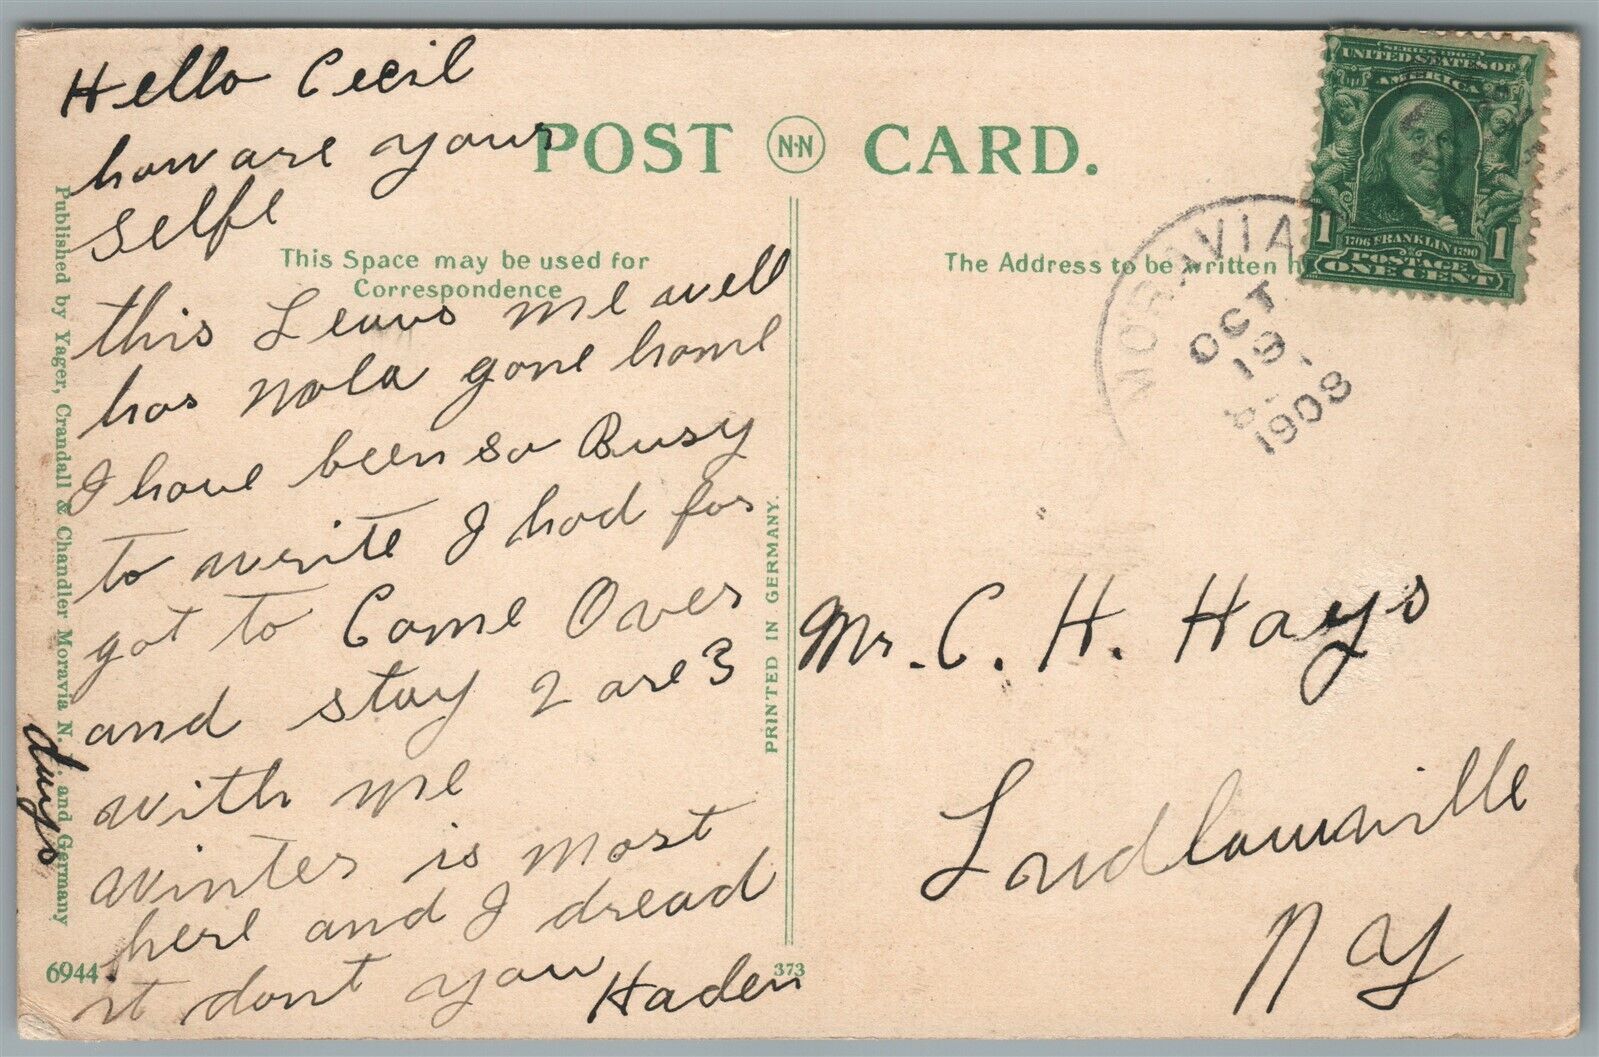 Hello Cecil
how are your
selfe
this Leavs me well
has Nola gone home
I have been so Busy
to write I had for
got to Come Over
and stay 2 are 3
days
with me
winter is most
here and I dread
it dont you
Haden
POST N·N CARD.
This Space may be used for
Correspondence
The Address to be written h
Published by Yager, Crandall & Chandler Moravia N. Y. and Germany
6944
373
PRINTED IN GERMANY.
SERIES 1902
UNITED STATES OF
AMERICA
1706 FRANKLIN 1790
1 1
POSTAGE
ONE CENT
MORAVIA
OCT
19
1908
Mr. C. H. Hays
Ludlowville
N Y